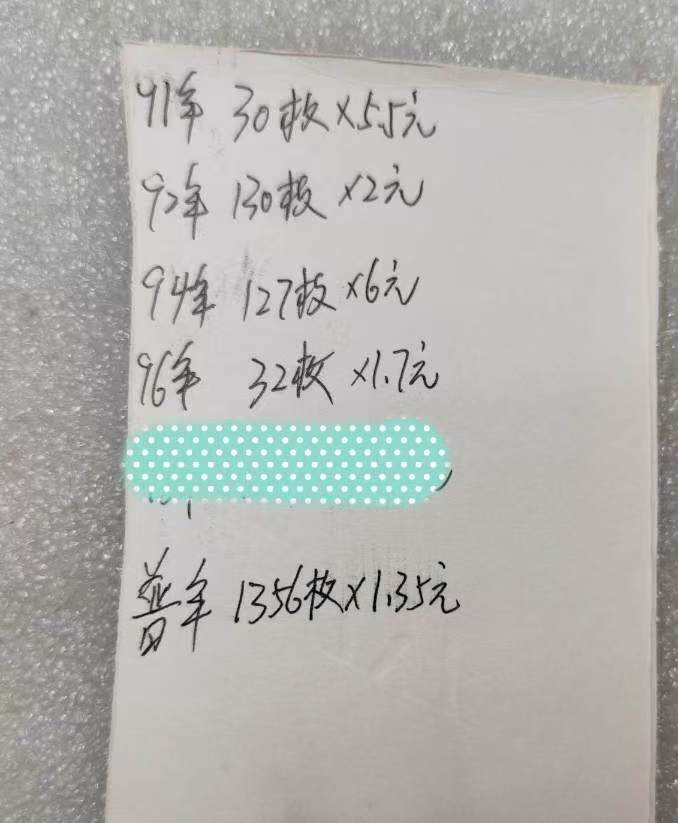 91年 30枚×5.5元
92年 130枚×2元
94年 127枚×6元
96年 32枚×1.7元
普年 1356枚×1.35元